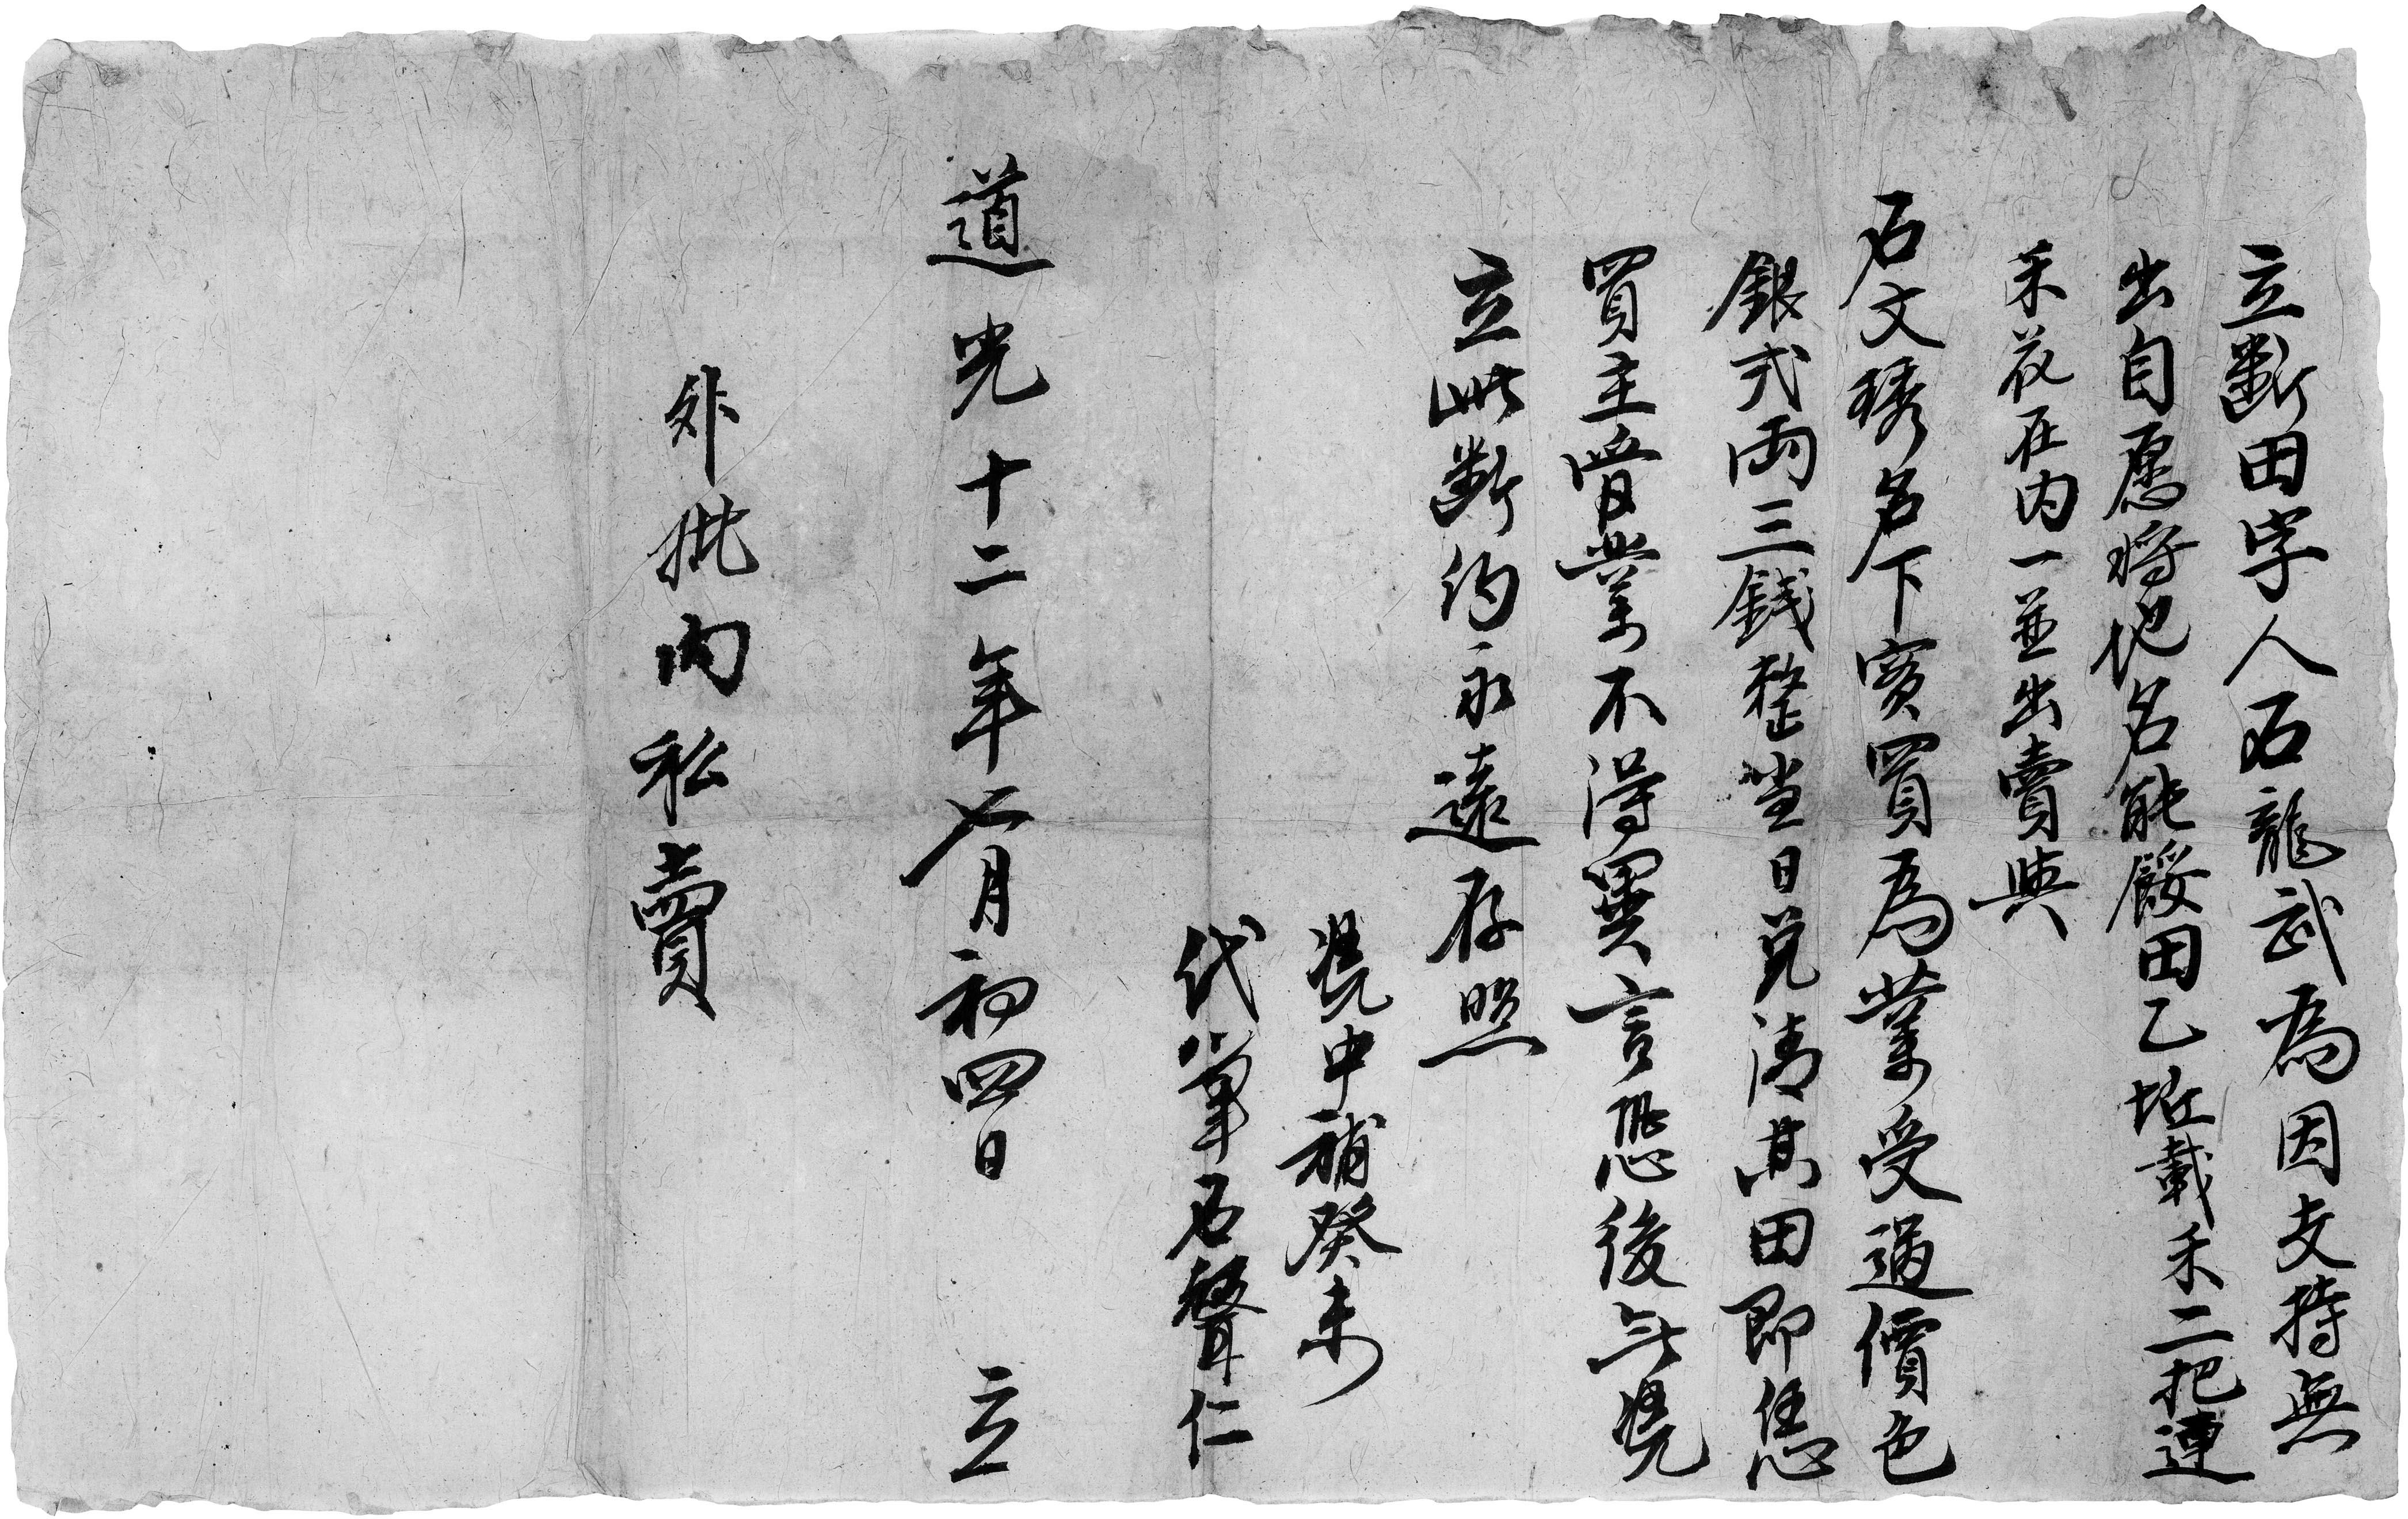 立斷田字人石龍武為因支持無
出自愿將地名能餒田乙坵載禾二把連
禾花在内一並出賣與
石文琇名下實買為業受過價色
銀弍両三錢整當日兌清其田即恁
買主管業不淂異言恐後無凴
立此断約永遠存照
凴中補癸未
代筆石聲仁
道光十二年七月初四日 立
外批内私賣